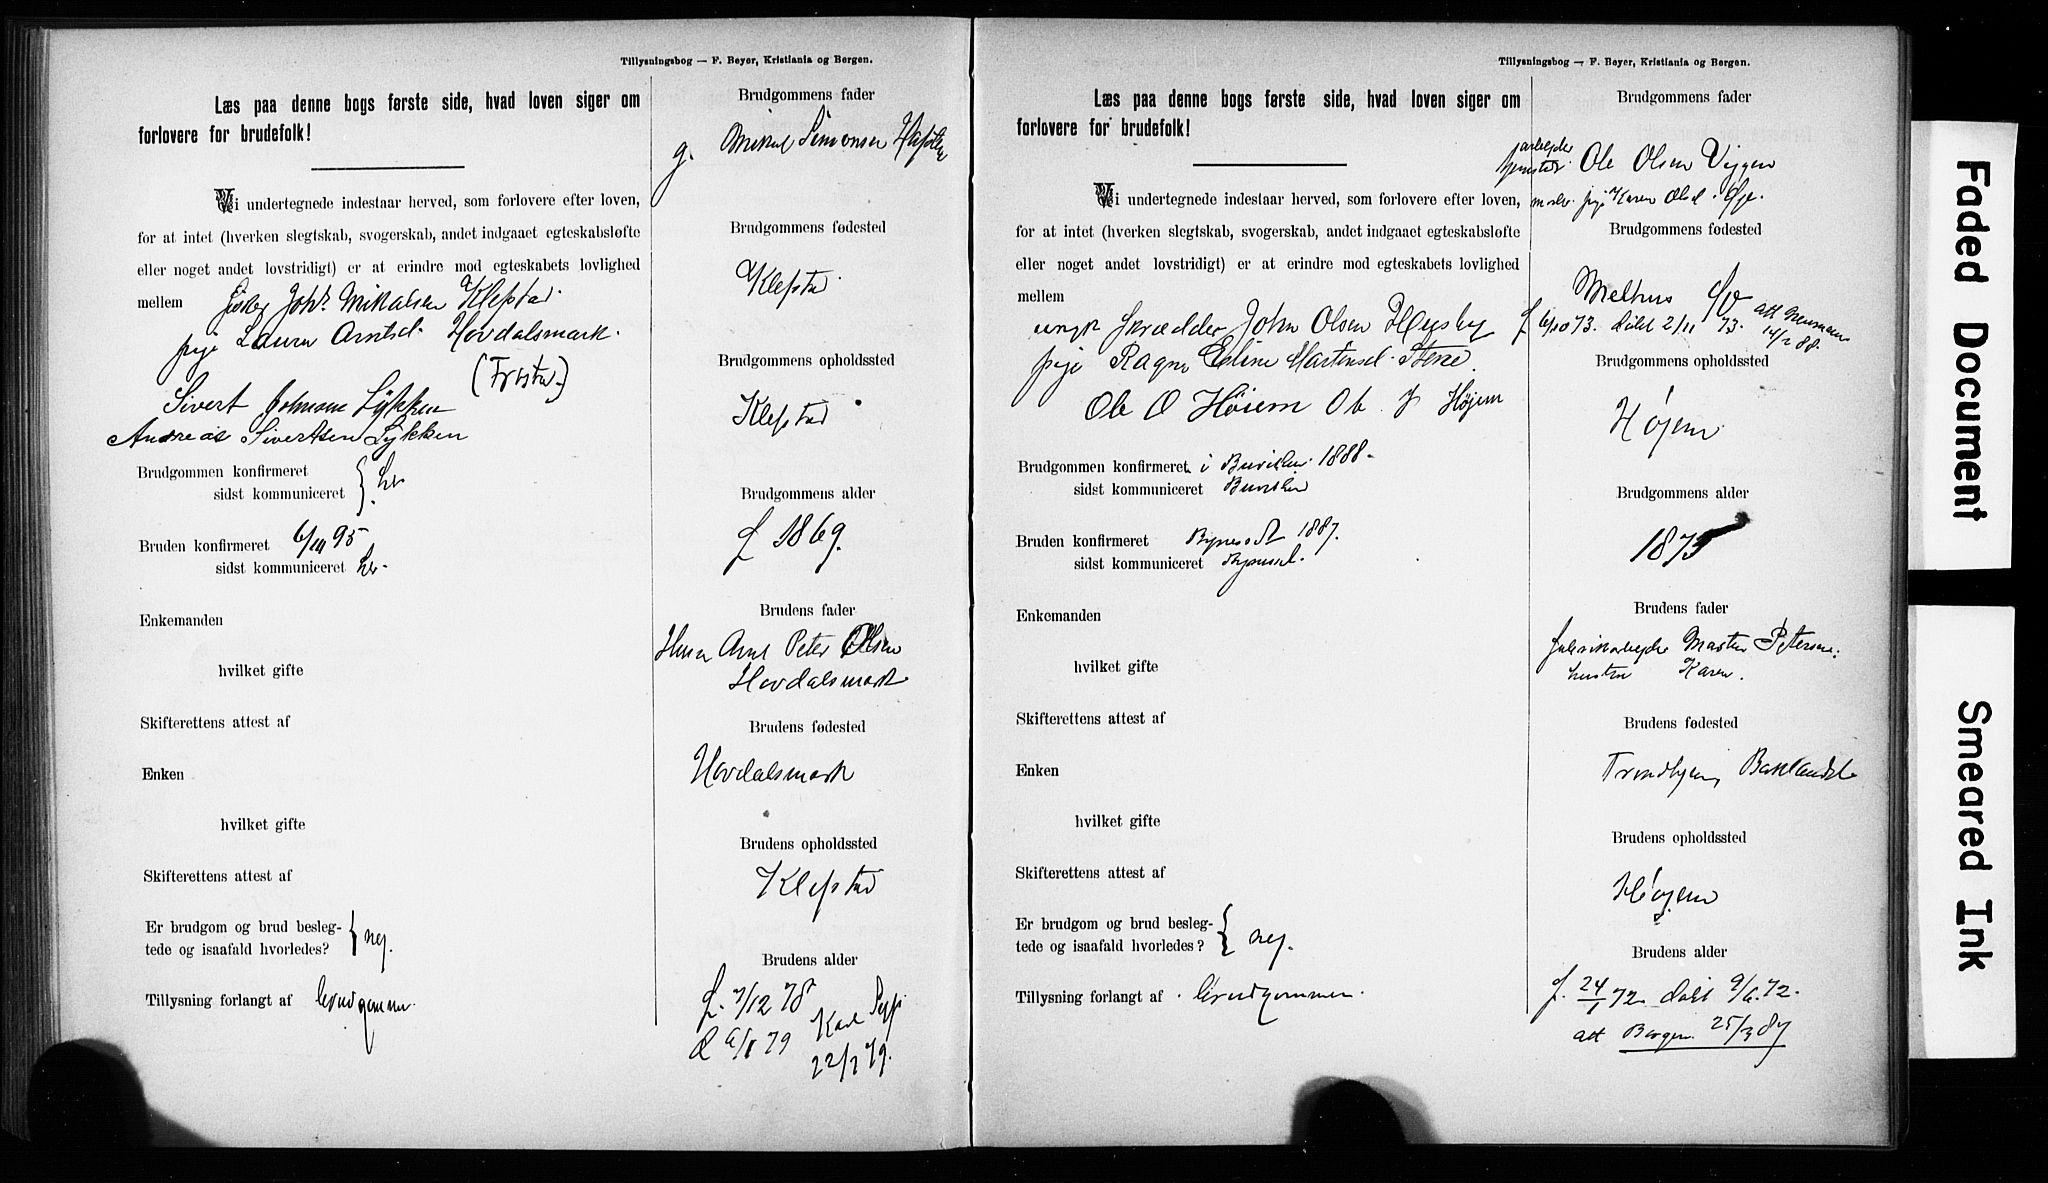 Tillysningsbog — F. Beyer, Kristiania og Bergen.
Læs paa denne bogs første side, hvad loven siger om
forlovere for brudefolk!
Vi undertegnede indestaar herved, som forlovere efter loven,
for at intet (hverken slegtskab, svogerskab, andet indgaaet egteskabsløfte
eller noget andet lovstridigt) er at erindre mod egteskabets lovlighed
mellem Joh. Mikalsen Klefstad
pige Laura Arntsd. Hovdalsmark.
Sivert Johnsen Lykken
Andreas Sivertsen Lykken
Brudgommen konfirmeret
sidst kommuniceret } her
Bruden konfirmeret 95
sidst kommuniceret her.
Enkemanden
hvilket gifte
Skifterettens attest af
Enken
hvilket gifte
Skifterettens attest af
Er brudgom og brud besleg-
tede og isaafald hvorledes? } nej.
Tillysning forlangt af brudgommen.
Brudgommens fader
g. Mikal Simonsen
Brudgommens fødested
Klefstad
Brudgommens opholdssted
Klefstad
Brudgommens alder
f 1869.
Brudens fader
Arnt Peter Olsen
Hovdalsmark
Brudens fødested
Hovdalsmark
Brudens opholdssted
Klefstad
Brudens alder
f. 7/12 78
79
22/2 79.
Tillysningsbog — F. Beyer, Kristiania og Bergen.
Læs paa denne bogs første side, hvad loven siger om
forlovere for brudefolk!
Vi undertegnede indestaar herved, som forlovere efter loven,
for at intet (hverken slegtskab, svogerskab, andet indgaaet egteskabsløfte
eller noget andet lovstridigt) er at erindre mod egteskabets lovlighed
mellem
ungk skrædder John Olsen Heggsby
pige Ragna Eline Martinsd. Stene.
Ole O Høiem Ole J Højem
Brudgommen konfirmeret i 1888.
sidst kommuniceret
Bruden konfirmeret Bynesset 1887.
sidst kommuniceret Bynesset.
Enkemanden
hvilket gifte
Skifterettens attest af
Enken
hvilket gifte
Skifterettens attest af
Er brudgom og brud besleg-
tede og isaafald hvorledes? } nej.
Tillysning forlangt af brudgommen.
Brudgommens fader
arbejder
Ole Olsen Viggen
moder pige Karen Olsd. Øye.
Brudgommens fødested
Melhus
f 6/10 73. døbt 2/11 73. att Neumann
88.
Brudgommens opholdssted
Højem
Brudgommens alder
1873
Brudens fader
fabrikarbejder Martin Petersen.
hustru Karen.
Brudens fødested
Trondhjem, Baklandet
Brudens opholdssted
Højem
Brudens alder
f. 24/1 72. døbt 9/6. 72.
att Bergem 25/3 87
Faded Document
Smeared Ink